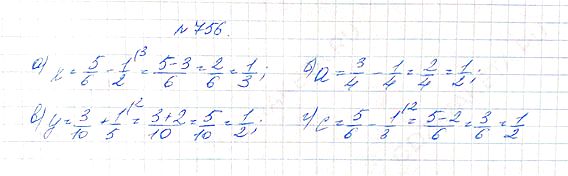 №756.
а) x = 5/6 - 1/2 \3 = 5-3/6 = 2/6 = 1/3; б) a = 3/4 - 1/4 = 2/4 = 1/2;
в) y = 3/10 + 1/5 \2 = 3+2/10 = 5/10 = 1/2; г) c = 5/6 - 1/3 \2 = 5-2/6 = 3/6 = 1/2